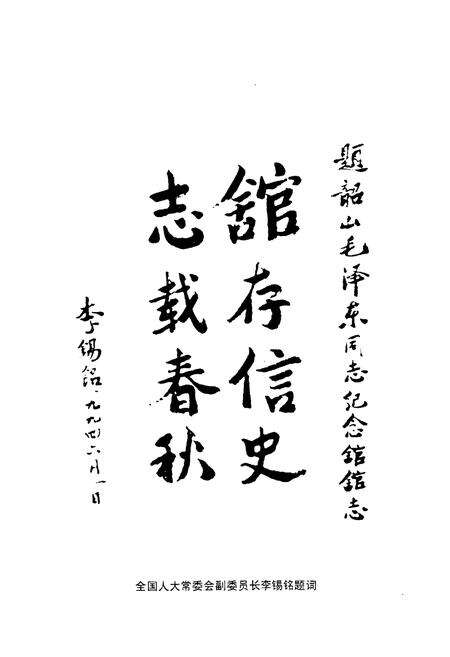 题韶山毛泽东同志纪念館館志
舘存信史
志载春秋
李锡铭一九九四六月一日
全国人大常委会副委员长李锡铭题词